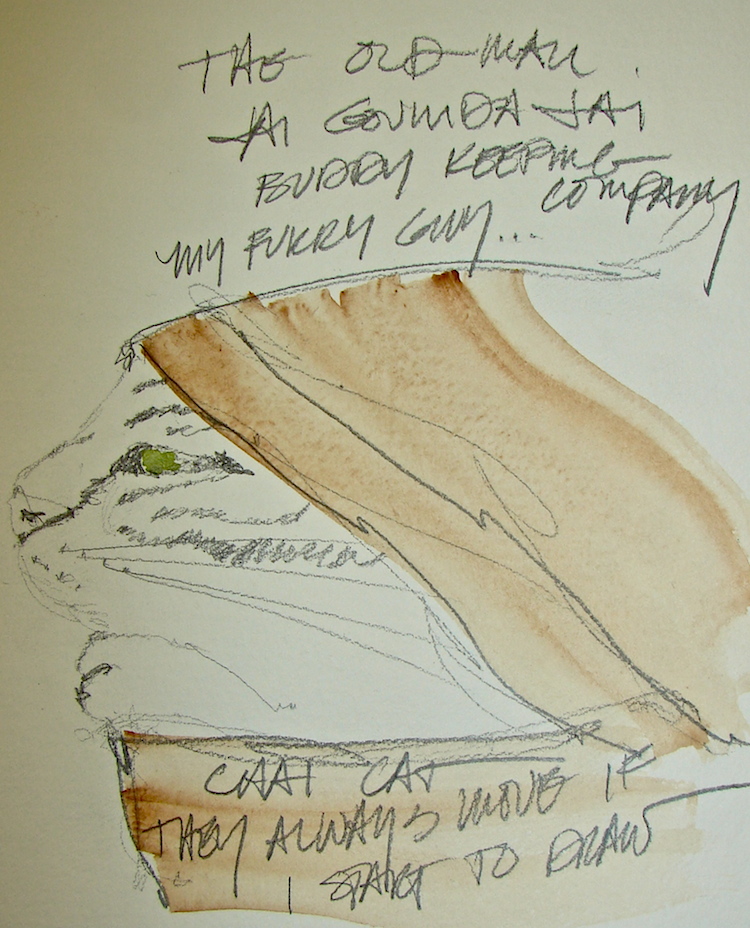 THE OLD MAN
JAI GOVINDA JAI
BUDDY KEEPING
COMPANY
MY FURRY GUY...
CHAI CAT
THEY ALWAYS MOVE IF
I START TO DRAW